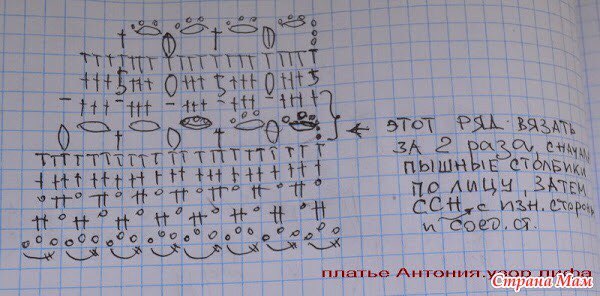 ← ЭТОТ РЯД ВЯЗАТЬ
ЗА 2 раза, СНАЧАЛА
ПЫШНЫЕ СТОЛБИКИ
ПО ЛИЦУ, ЗАТЕМ
ССН с изн. сторон
и соед. ст.
платье Антония.узор лифа
Страна Мам